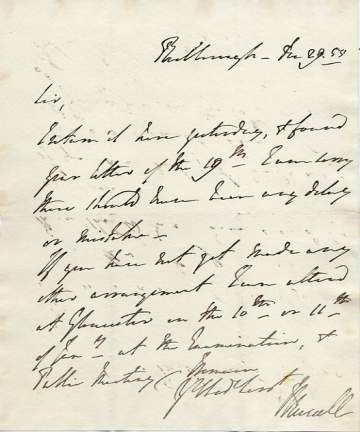 Dec 29. 53
Sir,
I return'd here yesterday, & found
your letter of the 19th I am sorry
there should have been any delay
or mistake —
If you have not yet made any
other arrangement I can attend
at Gloucester on the 10th or 11th
of Jany at the Examination, &
Public Meeting
I remain
Yr Obedt Servt